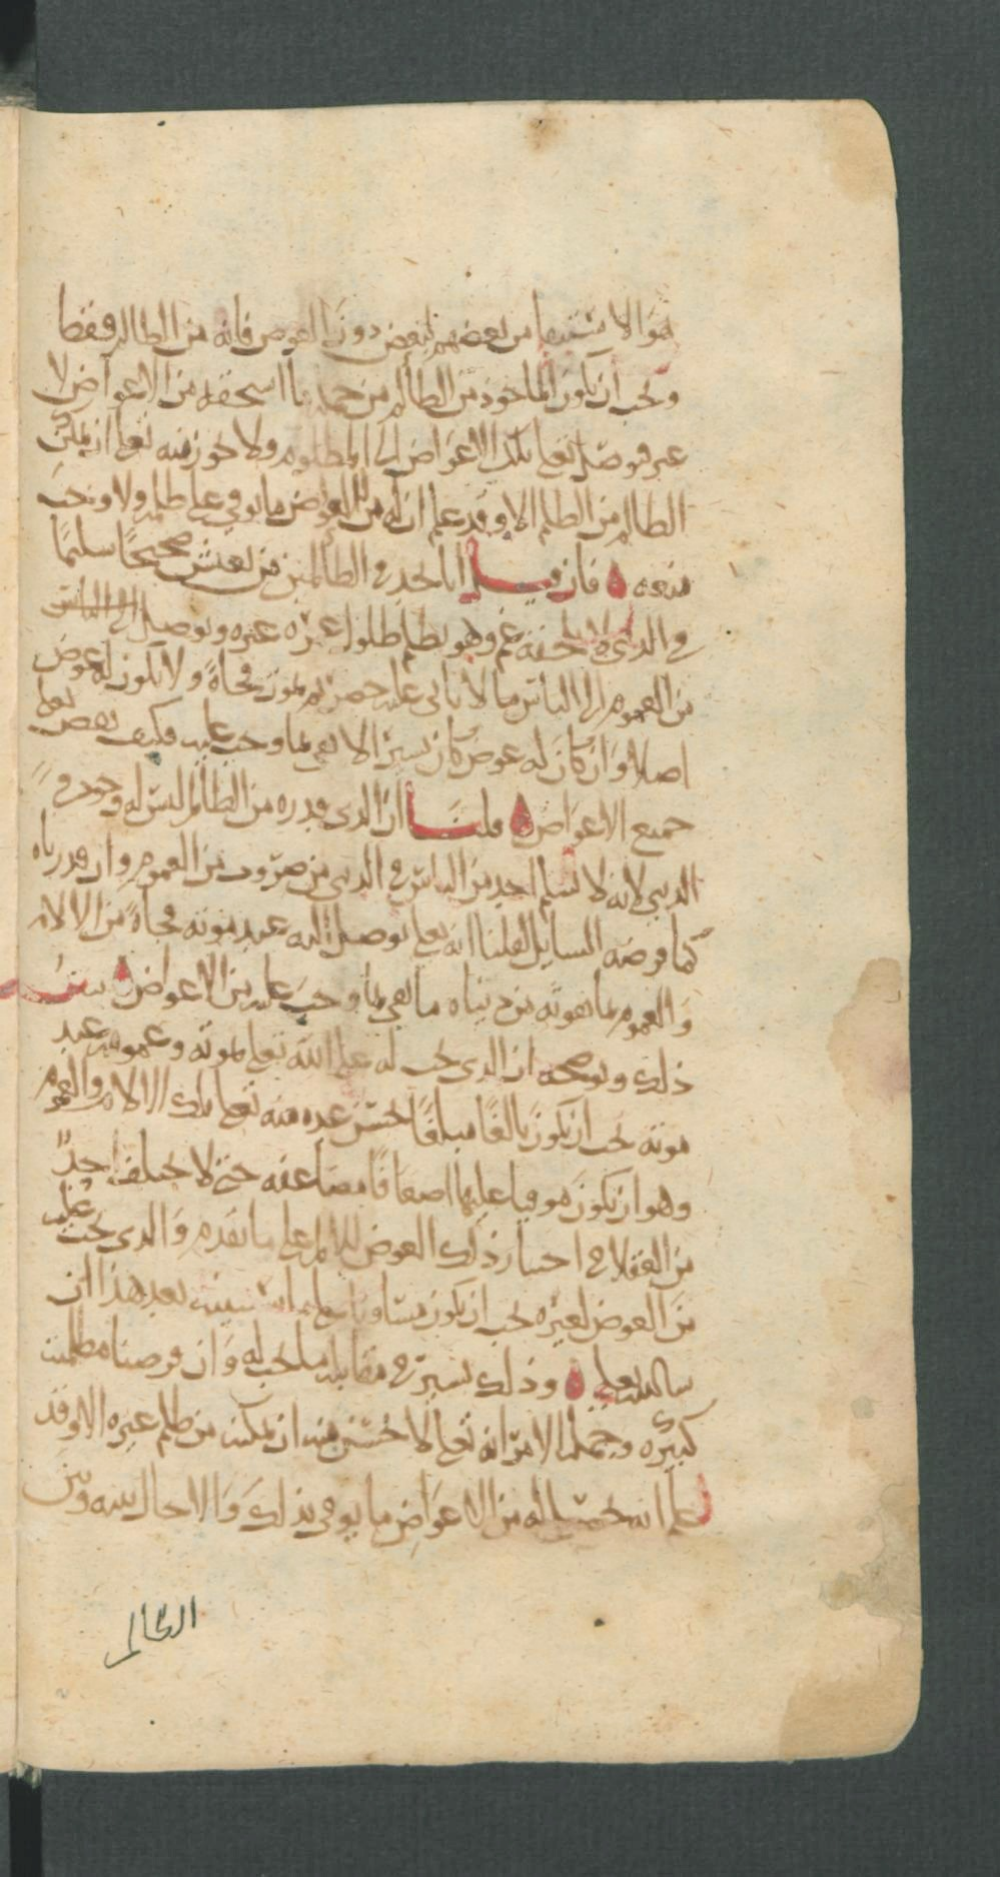 هو الاستيفا من بعضهم لبعض دون العوض فانه من الظالم فقط
ويجب ان يكون الماخوذ من الظالم من جملة ما استحقه من الاعواض لا
غير فيوصل تعلى تلك الاعواض الى المظلوم ولا يجوز منه تعلى ان يمكن
الظالم من الظلم الا وقد علم ان له من العواض ما يوفي على ظلمه ولا وجب
منعه ه فان قيل انا نجد في الظالمين من يعيش صحيحا سليما
في الدنيا لا يلحقه غم وهو يظلم طلول عمره غيره ويوصل
من الغموم الى الناس ما لا ياتي عليه حصر ثم يموت فجاة ولا يكون له عوض
اصلا وان كان له عوض كان يسيرا لا يفي بما وجب عليه فكيف تعلى
جميع الاعواض ه قلنا ان الذي قدره من الظالم ليس له وجود في
الدنيا لانه لا يسلم احد من الناس في الدنيا من ضروب من الغموم وان قدرناه
كما فرضه السايل لقلنا انه تعلى يوصل اليه عند موته فجاة من الالام
والغموم بما يفوته من دنياه ما يفي بما وجب عليه من الاعواض ه يبين
ذلك ويوضحه ان الذي يجب له على الله تعلى بموته وغمومه عند
موته يجب ان يكون بالغا مبلغا يحسن عنده منه تعلى تلك الالام والغموم
وهو ان يكون موفيا عليها اضعافا مضاعفه حتى لا يختلف احد
من العقلا في اختيار ذلك العوض للالم على ما تقدم والذي يجب عليه
من العوض لغيره يجب ان يكون مساويا على ما سنبينه بعد هذا ان
شا الله تعلى ه وذلك يسير في مقابلة ما يجب له وان فرضنا مظلمته
كبيره وجملة الامر انه تعلى لا يحسن منه ان يمكنه من ظلم غيره الا وقد
علم انه له من الاعواض ما يوفي بذلك والا حال بينه وبين
الظالم